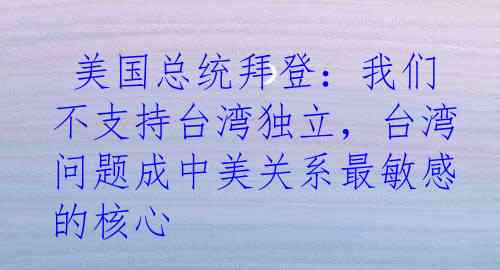 美国总统拜登：我们
不支持台湾独立，台湾
问题成中美关系最敏感
的核心